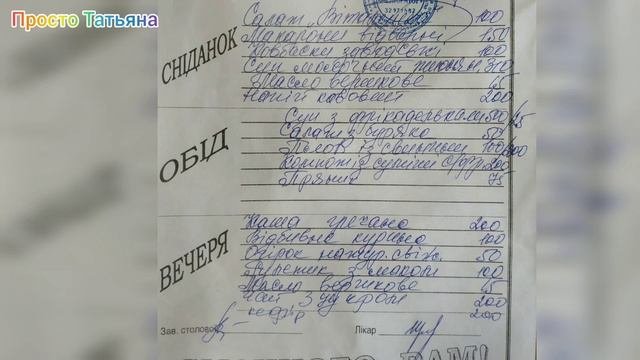 Просто Татьяна
СНІДАНОК
Салат "Вітамінний" 100
Макарони відварні 150
Ковбаски заводські 100
Суп молочний 310
Масло вершкове 15
Напій кавовий 200
ОБІД
Суп з фрікадельками 500/45
Салат з буряка 50
Плов із свинини 100/200
Компот із сухих с/фр 200
Пряник 75
ВЕЧЕРЯ
Каша гречана 200
Відбивна куряча 100
Огірок натур. свіж. 50
з маком 100
Масло вершкове 15
Чай з цукром 200
кефір 200
Зав. столовой
Лікар
ВАМ!